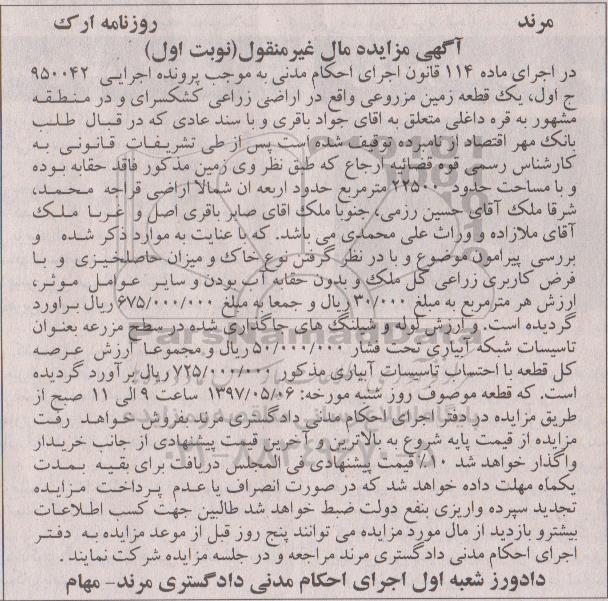 مرند روزنامه ارک
آگهی مزایده مال غیرمنقول(نوبت اول)
در اجرای ماده ۱۱۴ قانون اجرای احکام مدنی به موجب پرونده اجرایی ۹۵۰۰۴۲
ج اول، یک قطعه زمین مزروعی واقع در اراضی زراعی کشکسرای و در منطقه
مشهور به قره داغلی متعلق به اقای جواد باقری و با سند عادی که در قبال طلب
بانک مهر اقتصاد از نامبرده توقیف شده است پس از طی تشریفات قانونی به
کارشناس رسمی قوه قضائیه ارجاع که طبق نظر وی زمین مذکور فاقد حقابه بوده
و با مساحت حدود ۲۲۵۰۰ مترمربع حدود اربعه ان شمالا اراضی قراجه محمد،
شرقا ملک آقای حسین رزمی، جنوبا ملک اقای صابر باقری اصل و غربا ملک
آقای ملازاده و وراث علی محمدی می باشد. که با عنایت به موارد ذکر شده و
بررسی پیرامون موضوع و با در نظر گرفتن نوع خاک و میزان حاصلخیزی و با
فرض کاربری زراعی کل ملک و بدون حقابه آب بودن و سایر عوامل موثر،
ارزش هر مترمربع به مبلغ ۳۰/۰۰۰ ریال و جمعا به مبلغ ۶۷۵/۰۰۰/۰۰۰ ریال براورد
گردیده است. و ارزش لوله و شیلنگ های جاگذاری شده در سطح مزرعه بعنوان
تاسیسات شبکه آبیاری تحت فشار ۵۰/۰۰۰/۰۰۰ ریال و مجموعا ارزش عرصه
کل قطعه با احتساب تاسیسات آبیاری مذکور ۷۲۵/۰۰۰/۰۰۰ ریال بر آورد گردیده
است. که قطعه موصوف روز شنبه مورخه: ۱۳۹۷/۰۵/۰۶ ساعت ۹ الی ۱۱ صبح از
طریق مزایده در دفتر اجرای احکام مدنی دادگستری مرند بفروش خواهد رفت
مزایده از قیمت پایه شروع به بالاترین و آخرین قیمت پیشنهادی از جانب خریدار
واگذار خواهد شد ۱۰٪ قیمت پیشنهادی فی المجلس دریافت برای بقیه بمدت
یکماه مهلت داده خواهد شد که در صورت انصراف یا عدم پرداخت مزایده
تجدید سپرده واریزی بنفع دولت ضبط خواهد شد طالبین جهت کسب اطلاعات
بیشترو بازدید از مال مورد مزایده می توانند پنج روز قبل از موعد مزایده به دفتر
اجرای احکام مدنی دادگستری مرند مراجعه و در جلسه مزایده شرکت نمایند .
دادورز شعبه اول اجرای احکام مدنی دادگستری مرند- مهام
ParsNamadData
۰۲۱-۸۸۳۴۹۶۷۰